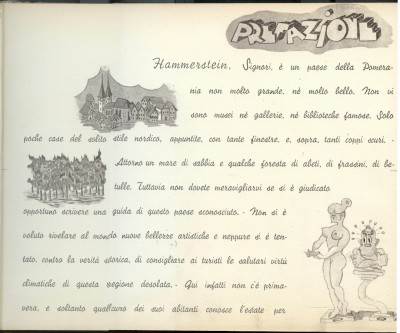 PREFAZIONE
Hammerstein, Signori, è un paese della Pomera-
nia non molto grande, nè molto bello. Non vi
sono musei nè gallerie, nè biblioteche famose. Solo
poche case del solito stile nordico, appuntite, con tante finestre, e, sopra, tanti coppi scuri. -
Attorno un mare di sabbia e qualche foresta di abeti, di frassini, di be-
tulle. Tuttavia non dovete meravigliarvi se si è giudicato
opportuno scrivere una guida di questo paese sconosciuto. - Non si è
voluto rivelare al mondo nuove bellezze artistiche e neppure si è ten-
tato, contro la verità storica, di consigliare ai turisti le salutari virtù
climatiche di questa regione desolata. - Qui infatti non c'è prima-
vera, e soltanto qualcuno dei suoi abitanti conosce l'estate per